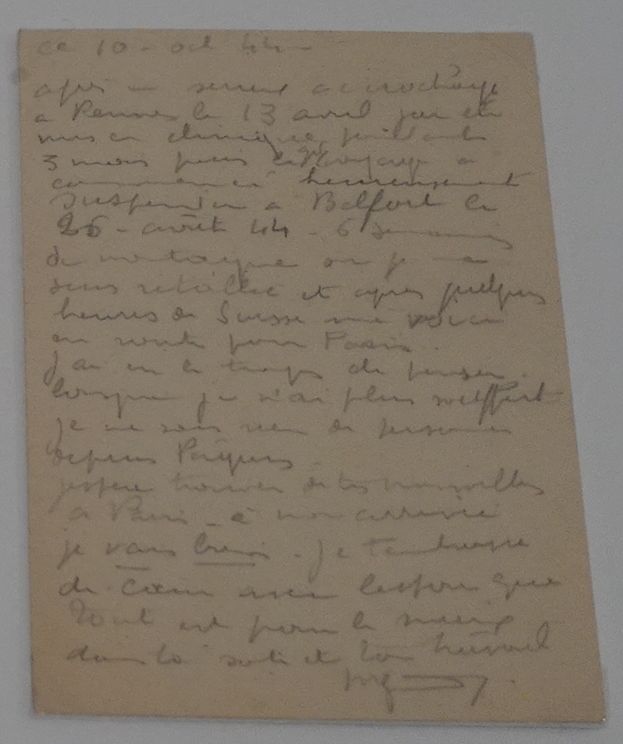 ce 10 - oct 44 -
après un sérieux accrochage
à Rennes le 13 avril j'ai été
mis en clinique pendant
3 mois puis le voyage a
commencé heureusement
suspendu à Belfort le
26 - août 44 - 6 semaines
de montagne où je me
suis rétablie et après quelques
heures de Suisse me voici
en route pour Paris.
J'ai eu le temps de penser
lorsque je n'ai plus souffert
je ne sais rien de personne
depuis Pâques
j'espère trouver de tes nouvelles
à Paris - à mon arrivée
je vais bien - Je t'embrasse
de cœur avec l'espoir que
tout est pour le mieux
dans la santé et ton travail